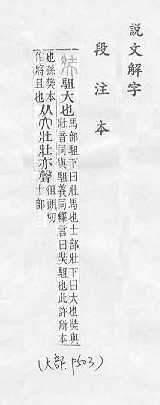 說文解字
段注本
奘駔大也
馬部駔下曰壯馬也士部壯下曰大也奘與
壯音同與駔義同釋言曰奘駔也此許所本
也孫樊本
作將且也
从大壯壯亦聲
徂朗切
十部
(大部. P503)